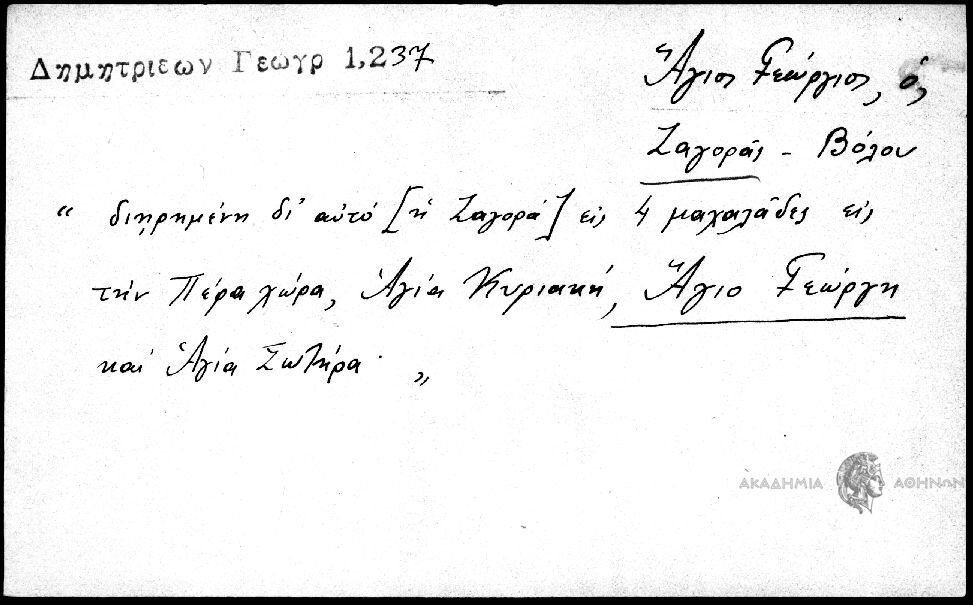 Δημητριεων Γεωγρ 1,237
Ἅγιος Γεώργιος, ὁ,
Ζαγορᾶς - Βόλου
“ διῃρημένη δι' αὐτό [ἡ Ζαγορά] εἰς 4 μαχαλάδες εἰς
τήν Πέρα χώρα, Ἁγία Κυριακή, Ἅγιο Γεώργη
καί Ἁγία Σωτήρα. „
ΑΚΑΔΗΜΙΑ ΑΘΗΝΩΝ